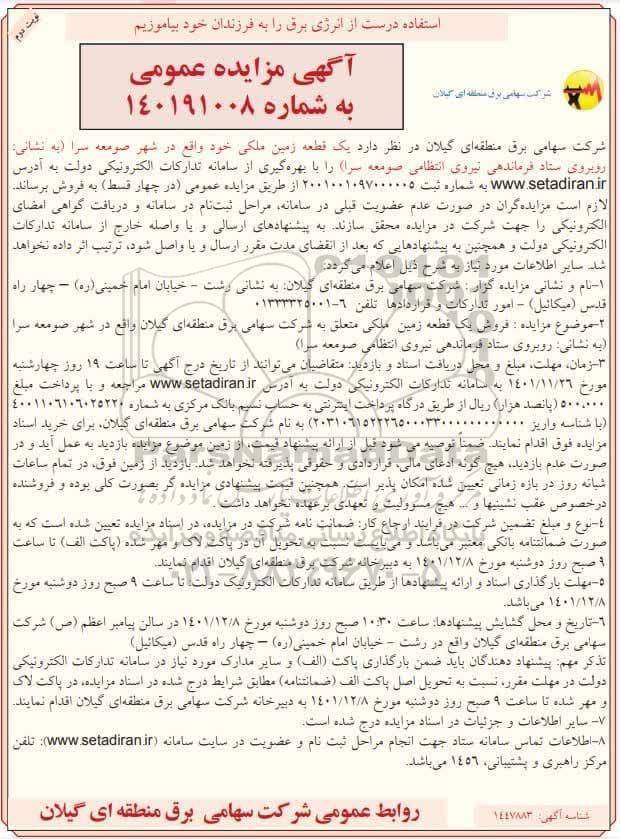 استفاده درست از انرژی برق را به فرزندان خود بیاموزیم
نوبت دوم
آگهی مزایده عمومی
به شماره ۱۴۰۱۹۱۰۰۸
شرکت سهامی برق منطقه ای گیلان
شرکت سهامی برق منطقه‌ای گیلان در نظر دارد یک قطعه زمین ملکی خود واقع در شهر صومعه سرا (به نشانی:
روبروی ستاد فرماندهی نیروی انتظامی صومعه سرا) را با بهره‌گیری از سامانه تدارکات الکترونیکی دولت به آدرس
www.setadiran.ir به شماره ثبت ۲۰۰۱۰۰۱۰۹۷۰۰۰۰۰۵ از طریق مزایده عمومی (در چهار قسط) به فروش برساند.
لازم است مزایده‌گران در صورت عدم عضویت قبلی در سامانه، مراحل ثبت‌نام در سامانه و دریافت گواهی امضای
الکترونیکی را جهت شرکت در مزایده محقق سازند. به پیشنهادهای ارسالی و یا واصله خارج از سامانه تدارکات
الکترونیکی دولت و همچنین به پیشنهادهایی که بعد از انقضای مدت مقرر ارسال و یا وصول شود، ترتیب اثر داده نخواهد
شد. سایر اطلاعات مورد نیاز به شرح ذیل اعلام می‌گردد:
۱-نام و نشانی مزایده گزار : شرکت سهامی برق منطقه‌ای گیلان: به نشانی رشت - خیابان امام خمینی(ره) – چهار راه
قدس (میکائیل) - امور تدارکات و قراردادها تلفن ۶-۰۱۳۳۳۳۲۵۰۰۱
۲-موضوع مزایده : فروش یک قطعه زمین ملکی متعلق به شرکت سهامی برق منطقه‌ای گیلان واقع در شهر صومعه سرا
(به نشانی: روبروی ستاد فرماندهی نیروی انتظامی صومعه سرا)
۳-زمان، مهلت، مبلغ و محل دریافت اسناد و بازدید: متقاضیان می‌توانند از تاریخ درج آگهی تا ساعت ۱۹ روز چهارشنبه
مورخ ۱۴۰۱/۱۱/۲۶ به سامانه تدارکات الکترونیکی دولت به آدرس www.setadiran.ir مراجعه و با پرداخت مبلغ
۵۰۰,۰۰۰ (پانصد هزار) ریال از طریق درگاه پرداخت اینترنتی به حساب نسیم بانک مرکزی به شماره ۴۰۰۱۱۰۶۱۰۶۰۲۵۲۲۰
(با شناسه واریز) به نام شرکت سهامی برق منطقه‌ای گیلان، برای خرید اسناد
مزایده فوق اقدام نمایند. ضمناً توصیه می شود قبل از ارائه پیشنهاد قیمت، از زمین موضوع مزایده بازدید به عمل آید و در
صورت عدم بازدید، هیچ گونه ادعای مالی، قراردادی و حقوقی پذیرفته نخواهد شد. بازدید از زمین فوق، در تمام ساعات
شبانه روز در بازه زمانی تعیین شده امکان پذیر است. همچنین قیمت پیشنهادی مزایده گر بصورت کلی بوده و فروشنده
درخصوص عقب نشینیها و ... هیچ مسوولیت و تعهدی برعهده نخواهد داشت .
۴-نوع و مبلغ تضمین شرکت در فرایند ارجاع کار: ضمانت نامه شرکت در مزایده، در اسناد مزایده تعیین شده است که به
صورت ضمانتنامه بانکی معتبر می‌باشد و می‌بایست نسبت به تحویل آن در پاکت لاک و مهر شده (پاکت الف) تا ساعت
۹ صبح روز دوشنبه مورخ ۱۴۰۱/۱۲/۸ به دبیرخانه شرکت برق منطقه‌ای گیلان اقدام نمایند.
۵-مهلت بارگذاری اسناد و ارائه پیشنهادها از طریق سامانه تدارکات الکترونیک دولت، تا ساعت ۹ صبح روز دوشنبه مورخ
۱۴۰۱/۱۲/۸ می‌باشد.
۶-تاریخ و محل گشایش پیشنهادها: ساعت ۱۰:۳۰ صبح روز دوشنبه مورخ ۱۴۰۱/۱۲/۸ در سالن پیامبر اعظم (ص) شرکت
سهامی برق منطقه‌ای گیلان واقع در رشت - خیابان امام خمینی(ره) – چهار راه قدس (میکائیل)
تذکر مهم: پیشنهاد دهندگان باید ضمن بارگذاری پاکت (الف) و سایر مدارک مورد نیاز در سامانه تدارکات الکترونیکی
دولت در مهلت مقرر، نسبت به تحویل اصل پاکت الف (ضمانتنامه) مطابق شرایط درج شده در اسناد مزایده، در پاکت لاک
و مهر شده تا ساعت ۹ صبح روز دوشنبه مورخ ۱۴۰۱/۱۲/۸ به دبیرخانه شرکت سهامی برق منطقه‌ای گیلان اقدام نمایند.
۷- سایر اطلاعات و جزئیات در اسناد مزایده درج شده است.
۸-اطلاعات تماس سامانه ستاد جهت انجام مراحل ثبت نام و عضویت در سایت سامانه (www.setadiran.ir): تلفن
مرکز راهبری و پشتیبانی، ۱۴۵۶ می‌باشد.
شناسه آگهی: ۱۴۴۷۸۸۳
روابط عمومی شرکت سهامی برق منطقه ای گیلان
ParsNamadData
پایگاه اطلاع رسانی مناقصه و مزایده
۰۲۱-۸۸۳۴۹۶۷۰-۵